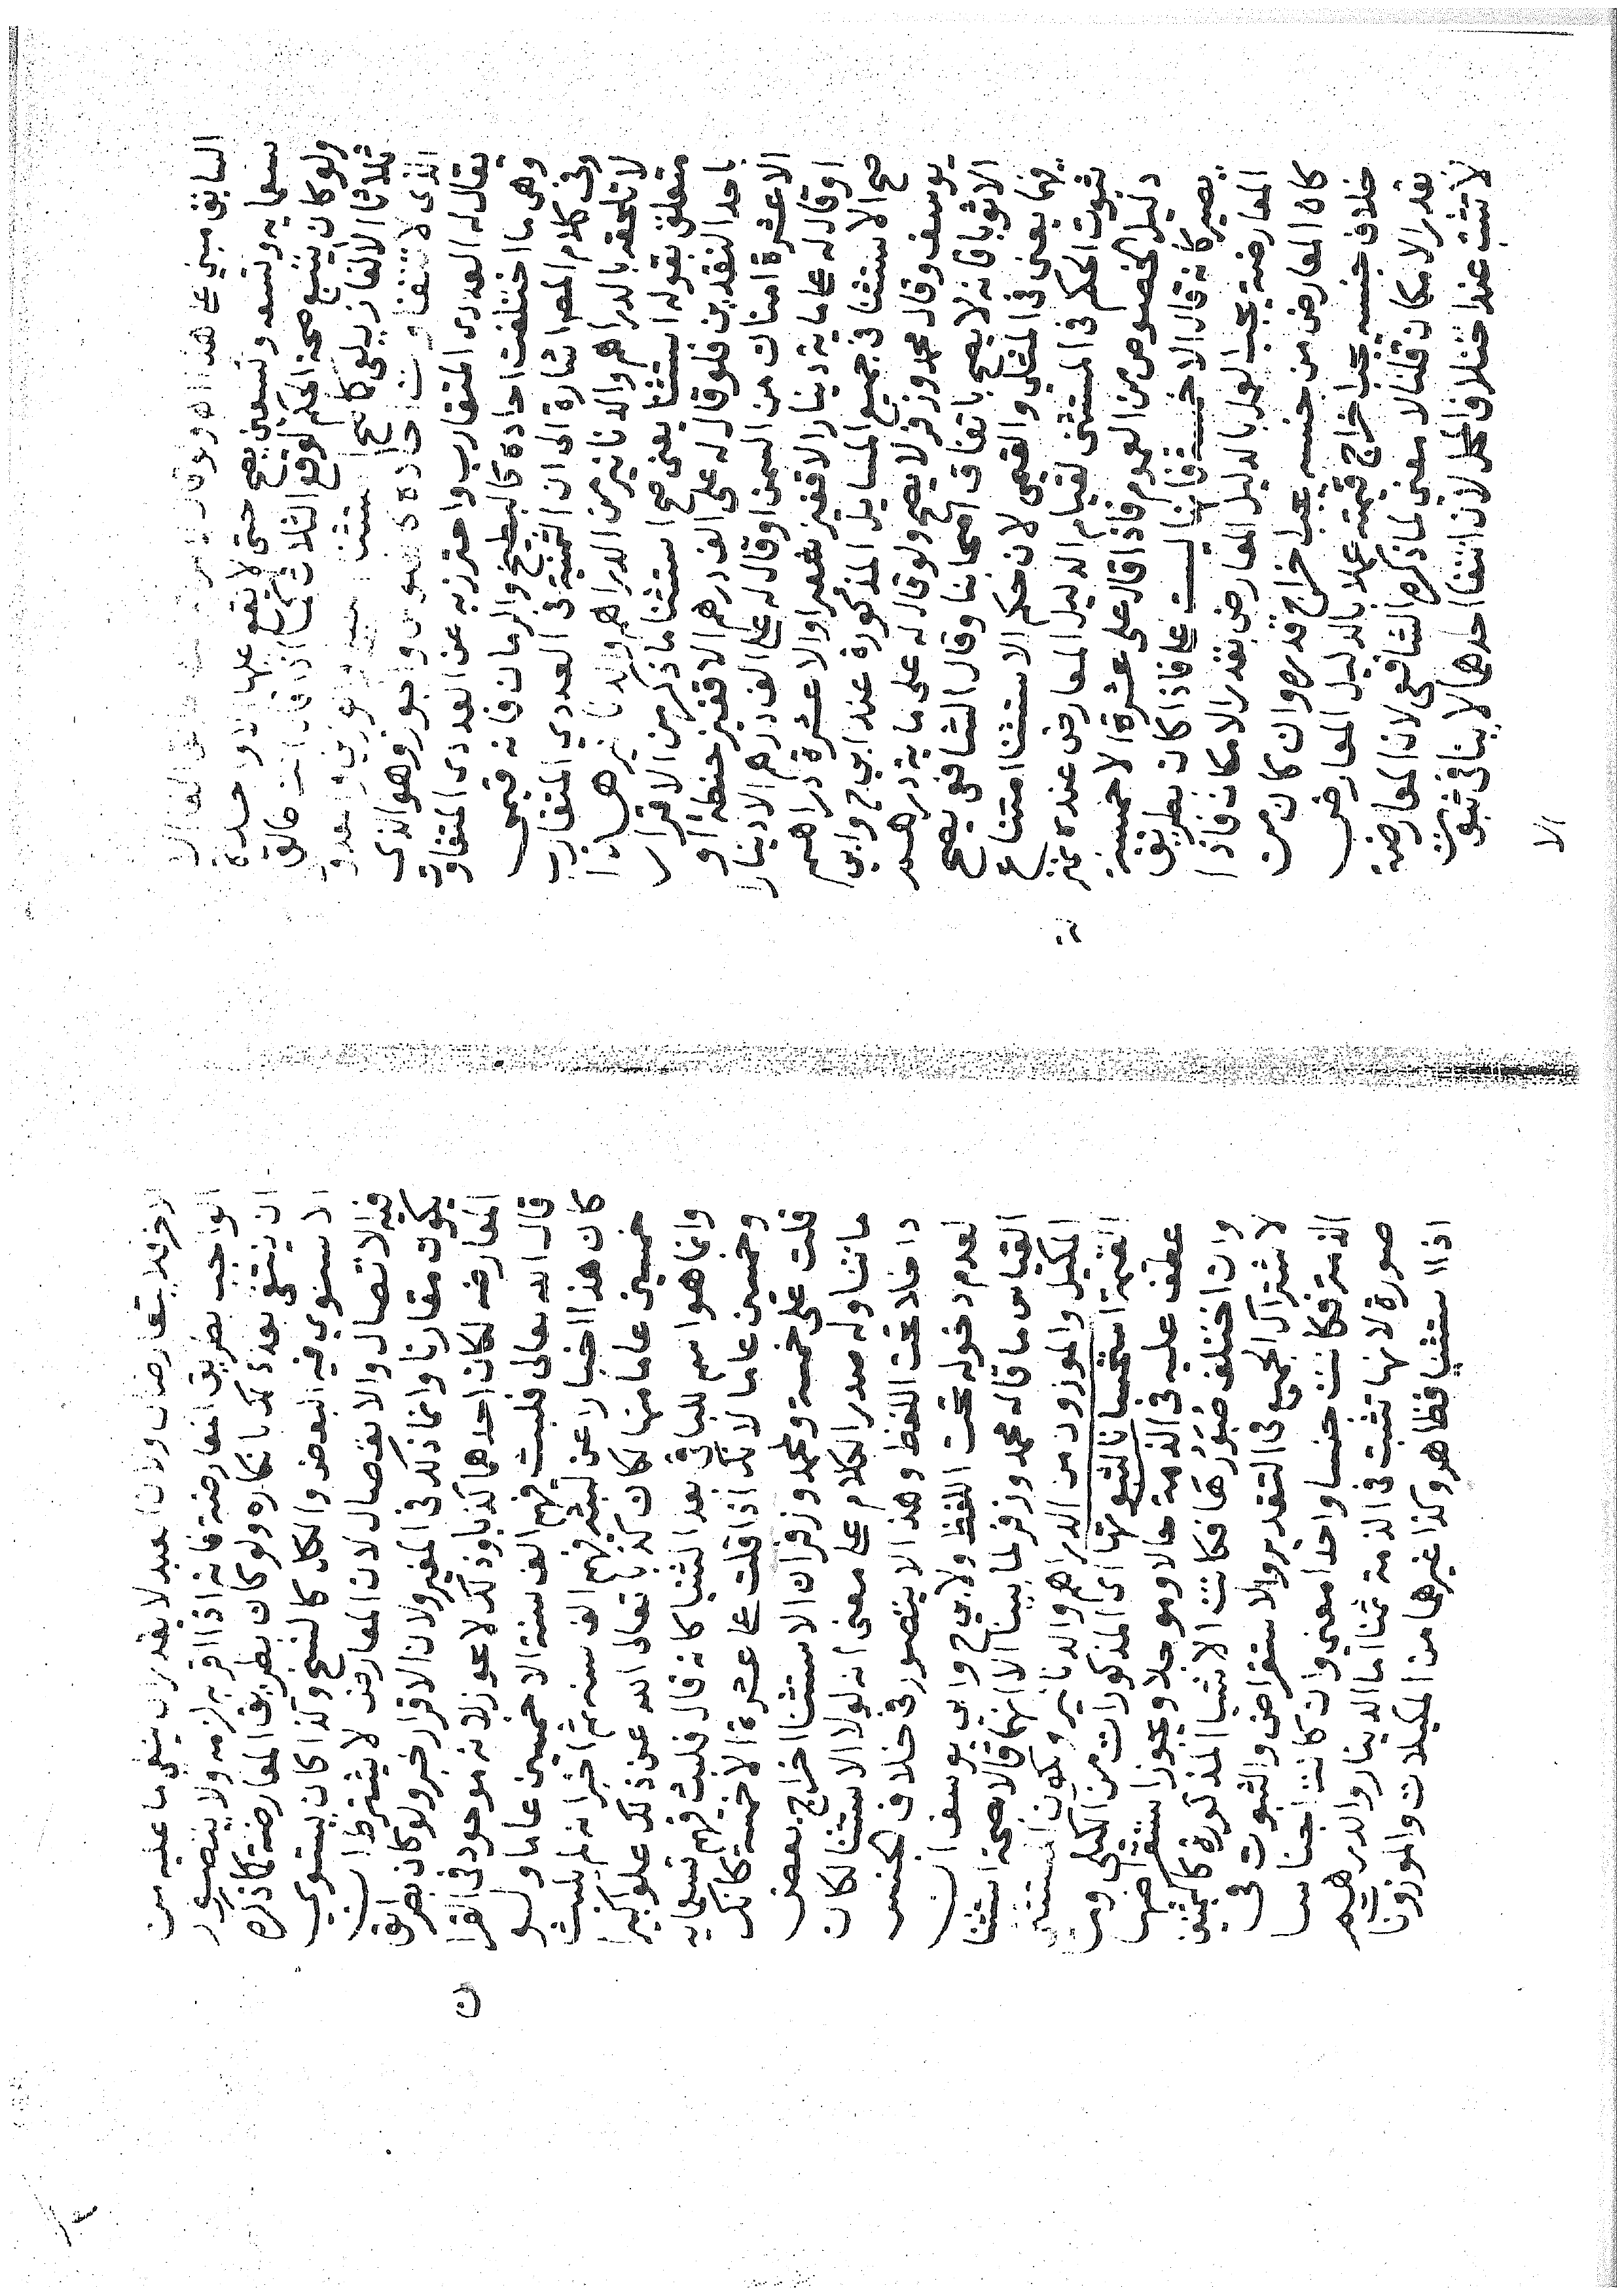 السابق مبني على هذا
سمايه وتسعه وتسعين يصح حتى لا يقع عليها الا واحدة
ولو كان يتبع صحة الحكم لوقع الثلاث كما اذا قال انت طالق
ثلاثا الا الفا زيلعي كما صح استثنا
الذي لا تتفاوت احاده كفلوس وجوز وهو الذي
يقال له العددي المتقارب واحترز به عن العددي المتفاوت
وهي ما اختلفت احاده كالبطيخ والرمان فانه قيمي
وفي كلام المص اشارة الى ان الثمنية في العددي المتقارب
لا تلحقه بالدراهم والدنانير من الدراهم والدنانير هذا
متعلق بقوله استثنا يعني صح استثنا ما ذكر من الاقرار
باحد النقدين فلو قال له على الف درهم الا قفيز حنطة او
الا عشرة امنات من السمن او قال له على الف درهم الا دينارا
او قال له على ماية دينار الا قفيز شعير او الا عشرة دراهم
صح الاستثنا في جميع المسايل المذكورة عند ابي ح وابي
يوسف وقال محمد وزفر لا يصح ولو قال له على ماية درهم
الا ثوبا فانه لا يصح باتفاق اصحابنا وقال الشافعي يصح
فيهما يعني في المثلي والقيمي لان حكم الاستثنا امتناع
ثبوت الحكم في المستثنى لقيام الدليل المعارض عنده بمنزلة
دليل الخصوص من العموم فاذا قال على عشرة الا خمسة
يصير كانه قال الا خمسة فانها ليست على فاذا كان بطريق
المعارضة يجب العمل بالدليل المعارض بقدر الامكان فاذا
كان المعارض من جنسه يجب اخراج قدره وان كان من
خلاف جنسه يجب اخراج قيمته عملا بالدليل المعارض
بقدر الامكان قلنا لا معنى لما ذكره الشافعي لان المعارضة
لا تثبت عند اختلاف المحل لان انتفا احدهما لا ينافي ثبوت
الا
الاخر فلا يتعارضان ولان العبد لا يقدر ان ينفي ما عليه من
الواجب بطريق المعارضة فانه اذا اقر به لزمه ولا يتصور
ان ينتفي بعد ذلك بانكاره ولو كان بطريق المعارضة كما ذكره
لاستوي فيه البعض والكل كالنسخ وكذا كان يستوي
فيه الاتصال والانفصال لان المعارض لا يشترط ان
يكون مقارنا وانما ذلك في المغير ولان الاقرار خبر ولو كان بطريق
المعارضه لكان احدهما كذبا وذلك لا يجوز لانه موجود في القران
قال الله تعالى فلبث فيهم الف سنة الا خمسين عاما ولو
كان هذا اخبارا عن لبثه فيهم الف سنه ثم اخبر انه لم يلبث
خمسين عاما منها لكان كذبا تعالى الله عن ذلك علوا كبيرا
وانما هو اسم للباقي بعد الثنيا كانه قال فلبث فيهم تسعمايه
وخمسين عاما لانك اذا قلت على عشرة الا خمسة كانك
قلت على خمسة ولمحمد وزفر ان الاستثنا اخراج بعض
ما تناوله صدر الكلام على معنى انه لولا الاستثنا لكان
داخلا تحت اللفظ وهذا لا يتصور في خلاف الجنس
لعدم دخوله تحت اللفظ ولابي ح وابي يوسف ان
القياس ما قاله محمد وزفر لما بينا الا انهما قالا بصحة استثنا
المكيل والموزون من الدراهم والدنانير ويكون المستثنى
القيمة استحسانا لثبوتها اي المذكورات من الكيلي وما
عطف عليه في الذمة حالا وموجلا ويجوز استقراضها
وان اختلف صورها فكانت الاشيا المذكورة كالجنس
لاشتراك الجميع في التقدير والاستقراض والثبوت في
الذمة فكانت جنسا واحدا معنى وان كانت اجناسا
صورة لانها تثبت في الذمة ثمنا اما الدينار والدرهم
اذا استثنيا فظاهر وكذا غيرهما من المكيلات والموزونا